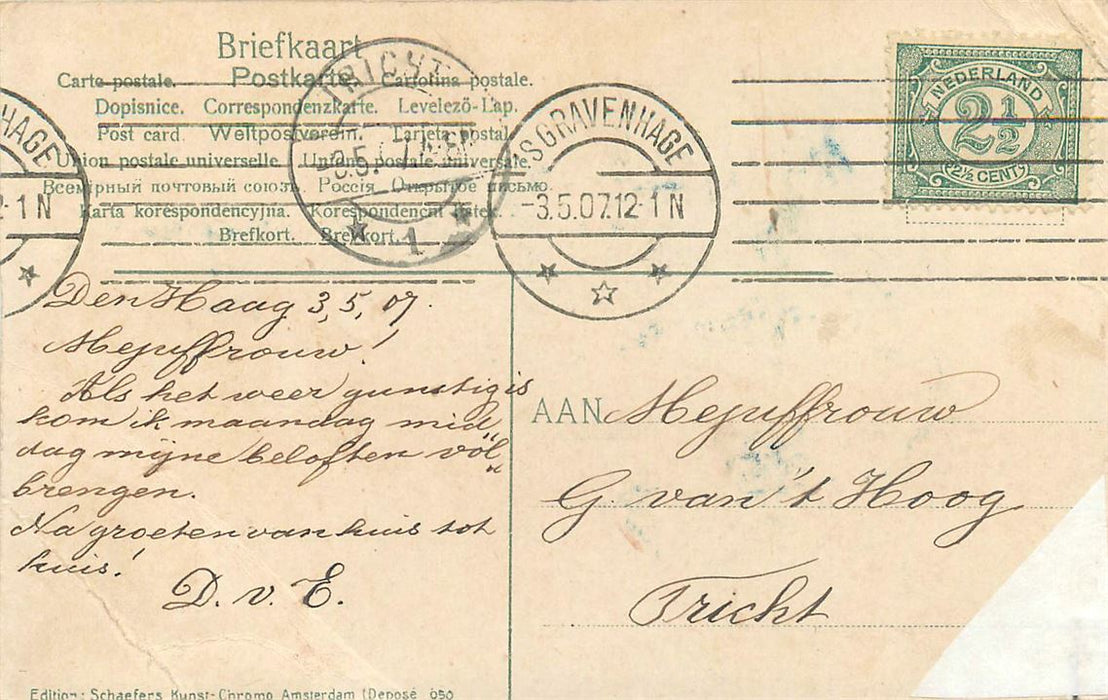 Briefkaart
Carte postale. Postkarte. Cartolina postale.
Dopisnice. Correspondenzkarte. Levelező-Lap.
Post card. Weltpostverein. Tarjeta postal.
Union postale universelle. Unione postale universale.
Всемірный почтовый союзъ. Россія. Открытое письмо.
Karta korespondencyjna. Korespondenční lístek.
Brefkort. Brevkort.
TRICHT
1
HAGE
2-1 N
SGRAVENHAGE
-3.5.07.12-1 N
NEDERLAND
2½
(2½ CENT)
Den Haag 3,5,07.
Mejuffrouw!
Als het weer gunstig is
kom ik maandag mid„
dag mijne beloften vol„
brengen.
Na groeten van huis tot
huis!
D. v. E.
AAN Mejuffrouw
G. van 't Hoog
Tricht
Edition: Schaefers Kunst-Chromo Amsterdam (Deposé 050